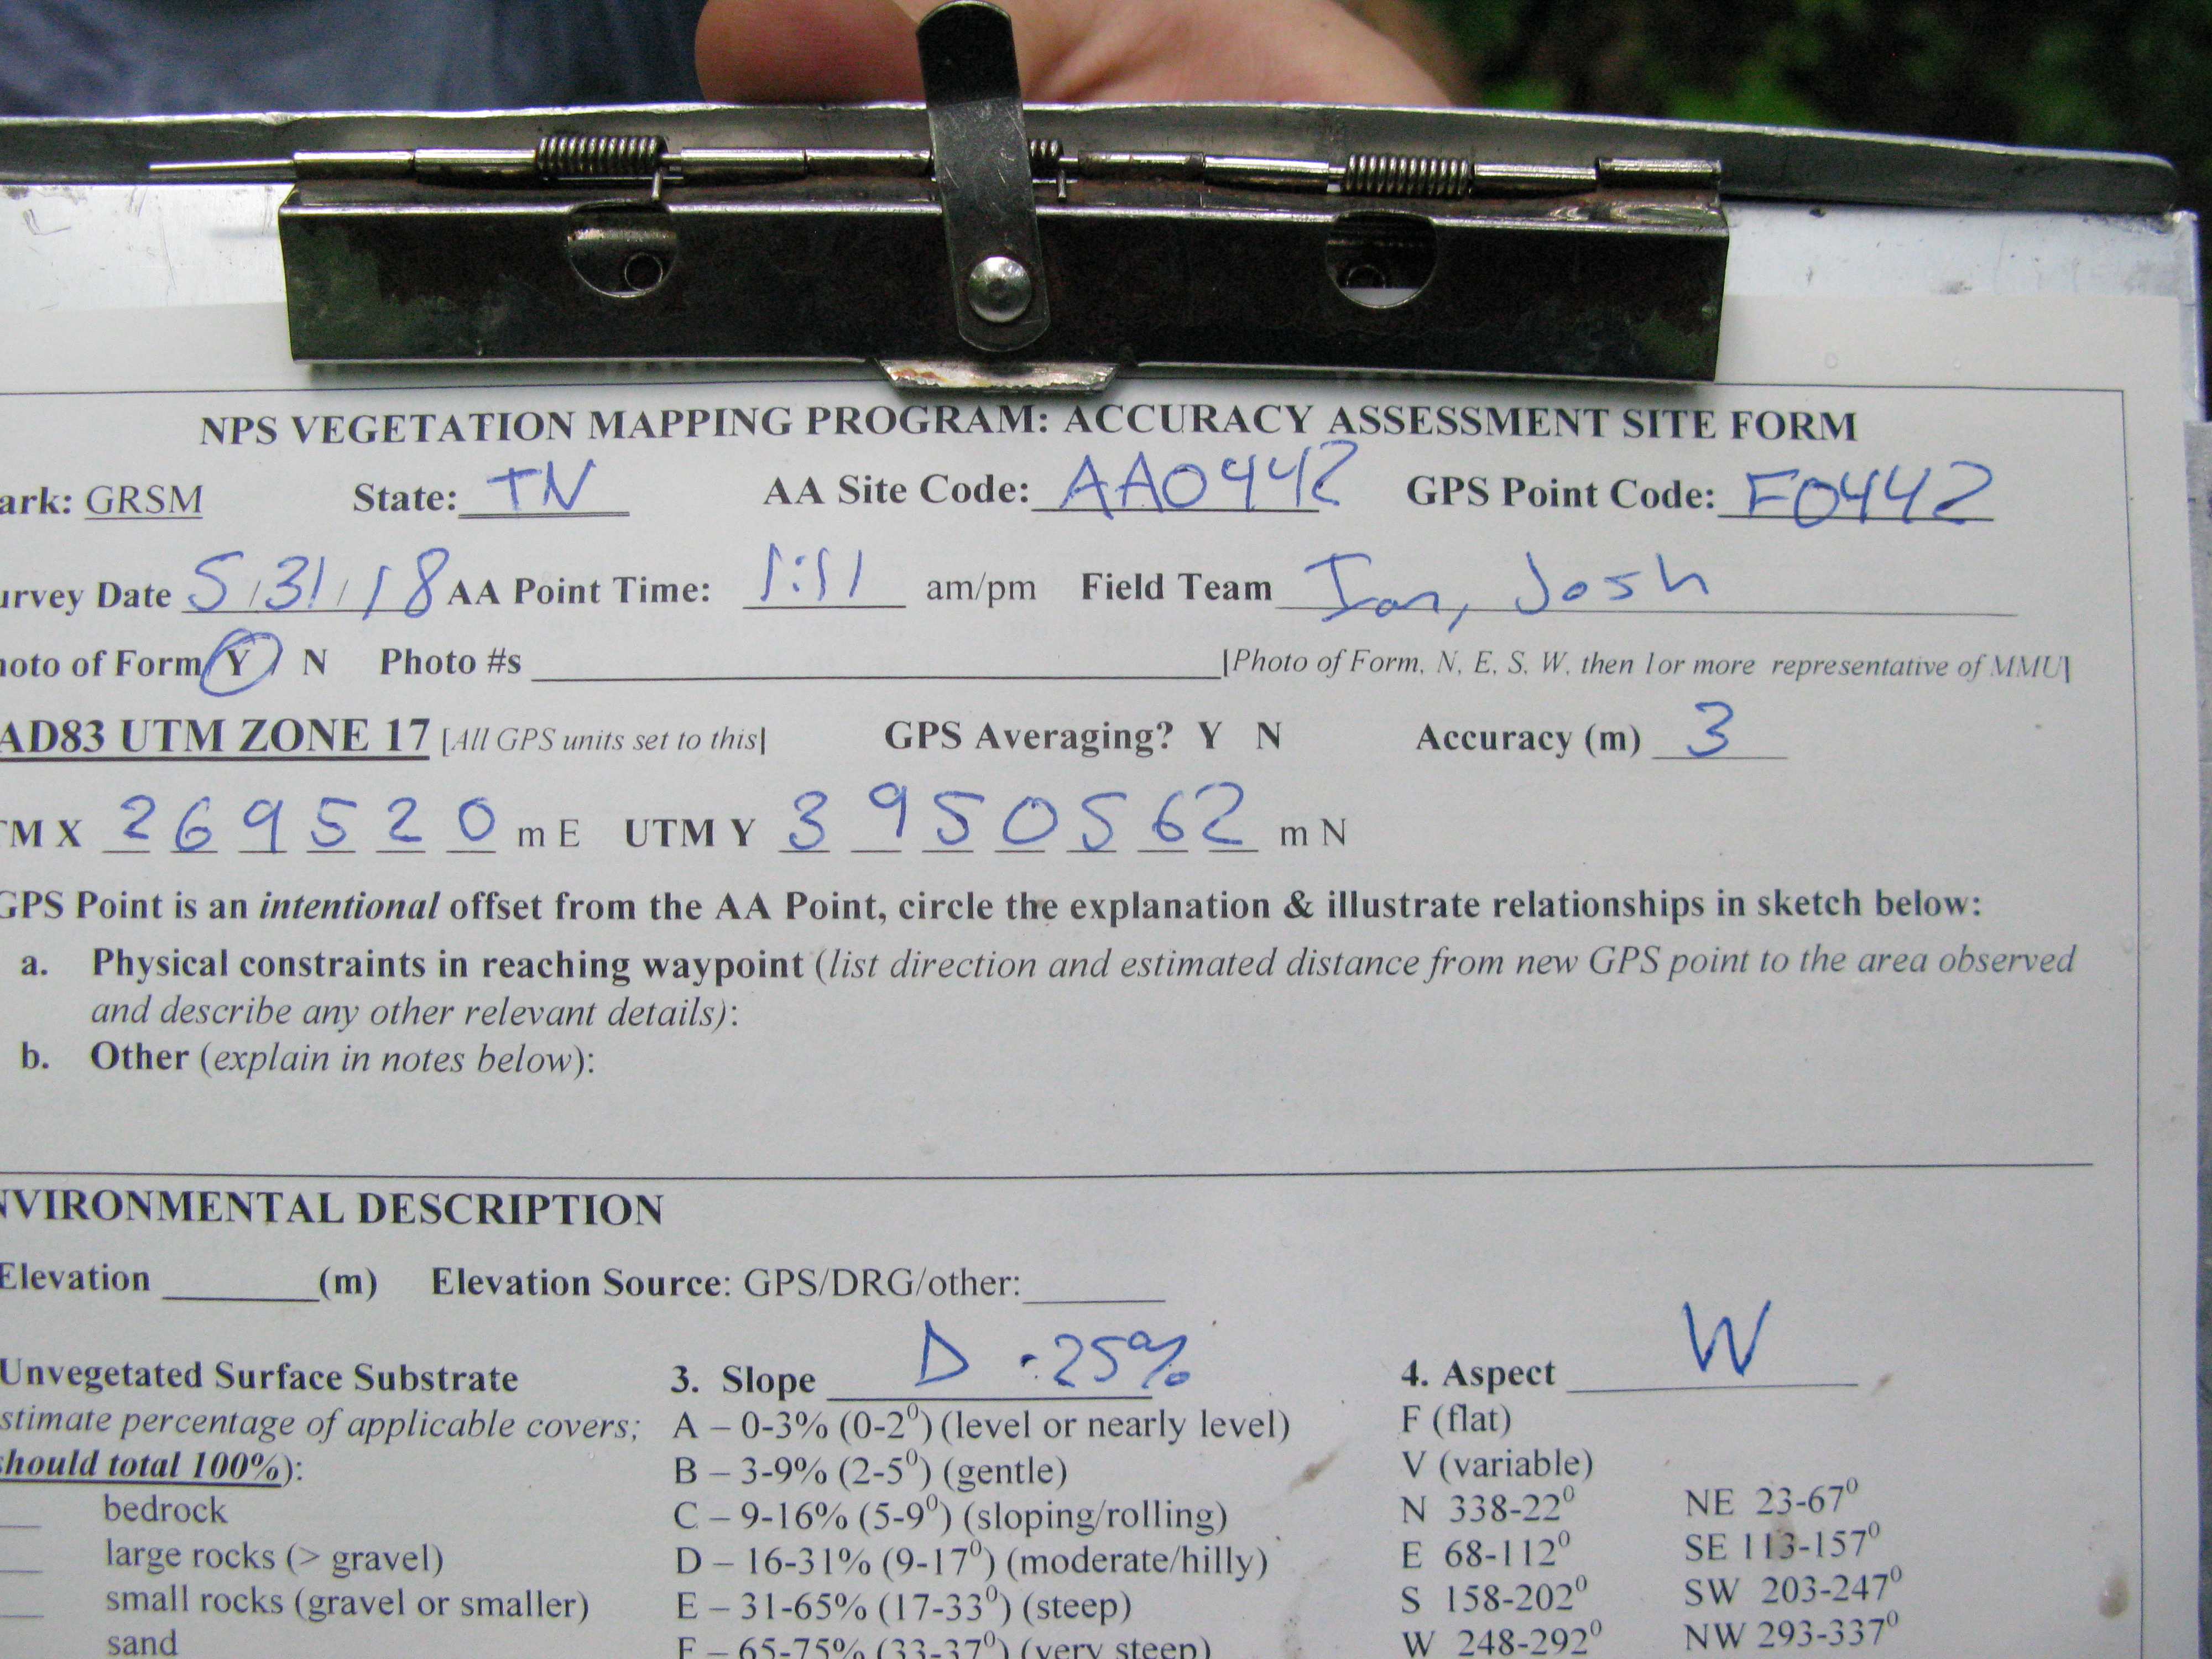 NPS VEGETATION MAPPING PROGRAM: ACCURACY ASSESSMENT SITE FORM
ark: GRSM State: TN AA Site Code: AA0442 GPS Point Code: F0442
urvey Date 5/31/18 AA Point Time: 1:11 am/pm Field Team Ian, Josh
hoto of Form Y / N Photo #s [Photo of Form, N, E, S, W, then 1or more representative of MMU]
AD83 UTM ZONE 17 [All GPS units set to this] GPS Averaging? Y N Accuracy (m) 3
TM X 2 6 9 5 2 0 m E UTM Y 3 9 5 0 5 6 2 m N
GPS Point is an intentional offset from the AA Point, circle the explanation & illustrate relationships in sketch below:
a. Physical constraints in reaching waypoint (list direction and estimated distance from new GPS point to the area observed
and describe any other relevant details):
b. Other (explain in notes below):
NVIRONMENTAL DESCRIPTION
Elevation (m) Elevation Source: GPS/DRG/other:
Unvegetated Surface Substrate 3. Slope D ·25% 4. Aspect W
stimate percentage of applicable covers; A – 0-3% (0-2⁰) (level or nearly level) F (flat)
should total 100%): B – 3-9% (2-5⁰) (gentle) V (variable)
bedrock C – 9-16% (5-9⁰) (sloping/rolling) N 338-22⁰ NE 23-67⁰
large rocks (> gravel) D – 16-31% (9-17⁰) (moderate/hilly) E 68-112⁰ SE 113-157⁰
small rocks (gravel or smaller) E – 31-65% (17-33⁰) (steep) S 158-202⁰ SW 203-247⁰
sand F – 65-75% (33-37⁰) (very steep) W 248-292⁰ NW 293-337⁰